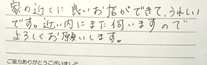 家の近くに良いお店ができて、うれしい
です。近い内にまた伺いますので
よろしくお願いします。
ご協力ありがとうございました